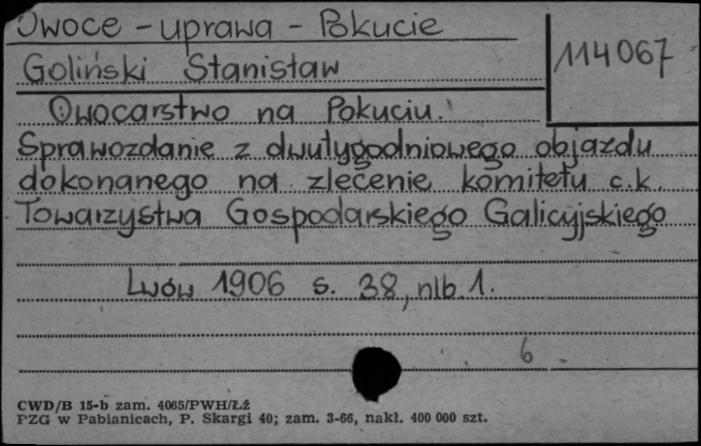 Owoce - uprawa - Pokucie
114067
Goliński Stanisław
Owocarstwo na Pokuciu.
Sprawozdanie z dwutygodniowego objazdu
dokonanego na zlecenie komitetu c.k.
Towarzystwa Gospodarskiego Galicyjskiego
Lwów 1906 s. 38, nlb. 1.
6
CWD/B 15-b zam. 4065/PWH/Łź
PZG w Pabianicach, P. Skargi 40; zam. 3-66, nakł. 400 000 szt.